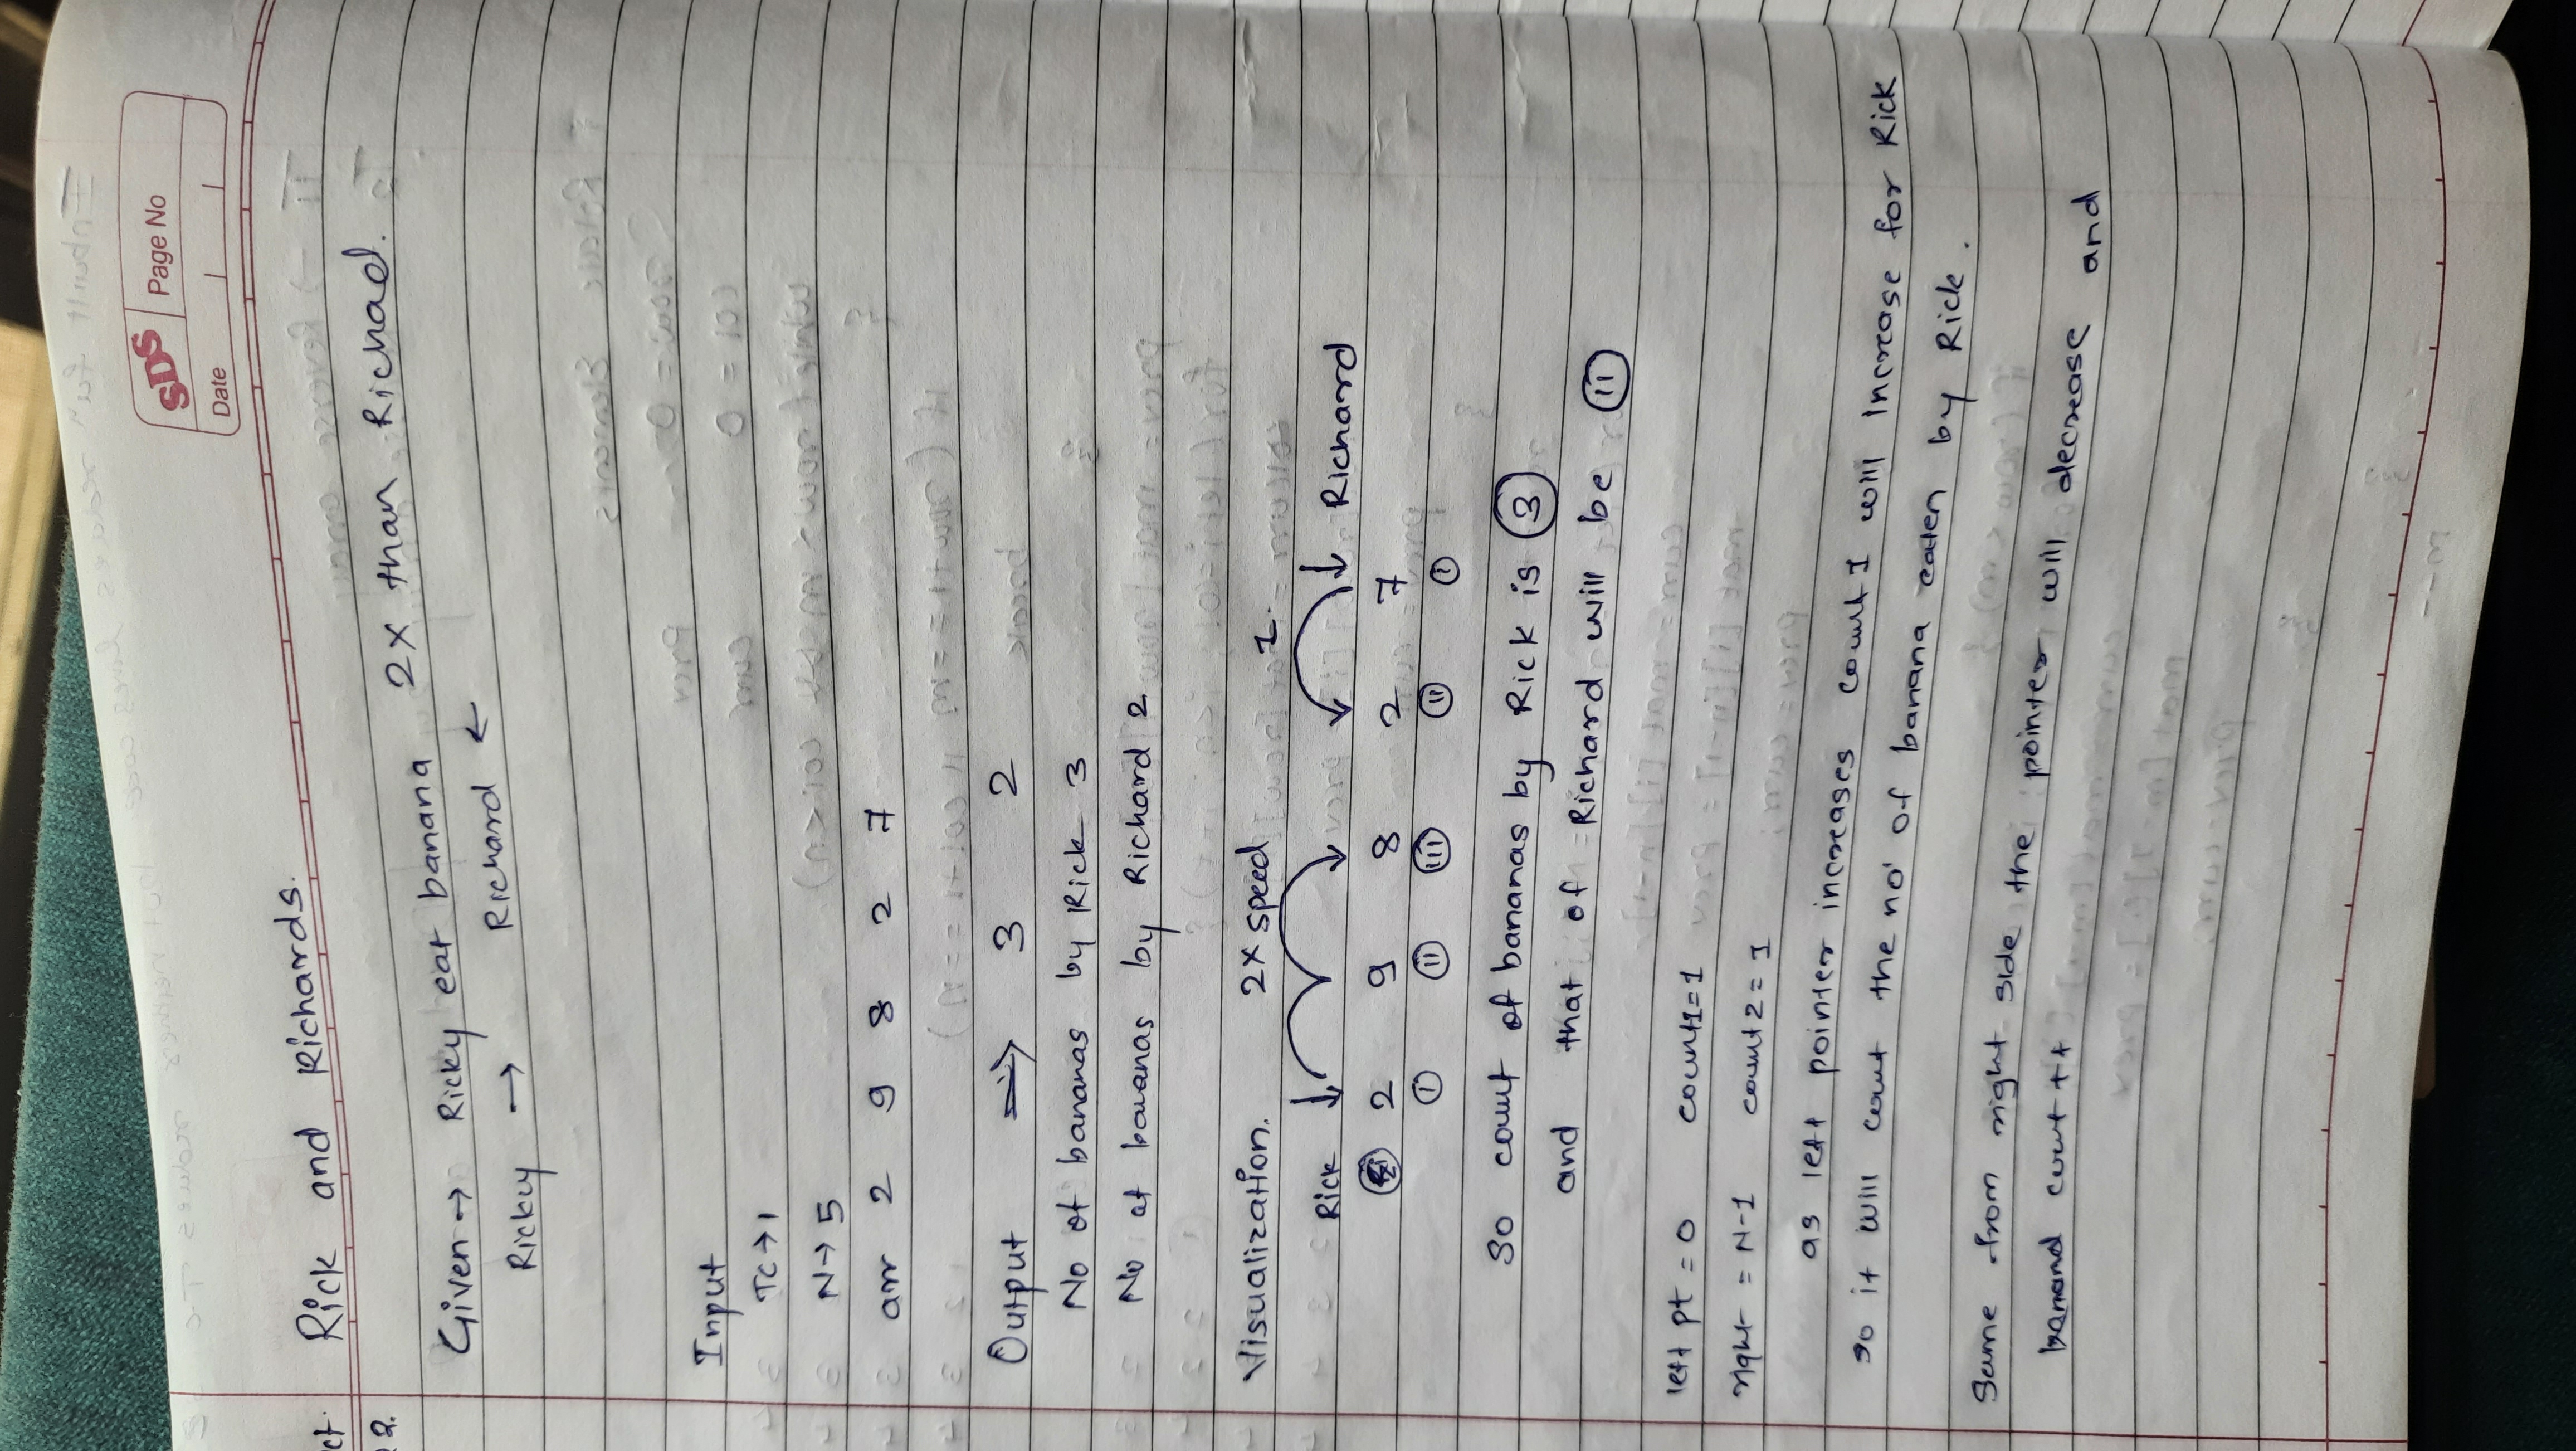 SDS Page No
Date
ct.
Rick and Richards.
2.
Given → Ricky eat banana 2x than Richad.
Rickcy → Richard ←
Input
TC → 1
N → 5
arr 2 9 8 2 7
Output ⇒ 3 2
No of bananas by Rick 3
No of bananas by Richard 2
Visualization. 2x speed 1.
Rick Richard
2 9 8 2 7
I II III II I
So count of bananas by Rick is 3
and that of Richard will be II
left pt = 0 count1=1
right = N-1 count2 = 1
as left pointer increases count 1 will increase for Rick
so it will count the no' of banana eaten by Rick.
Same from right side the pointer will decrease and
count ++